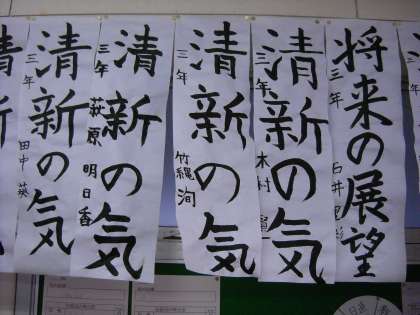 将来の展望
三年
石井
清新の気
三年
木村
清新の気
三年
竹縄 洵
清新の気
三年
萩原 明日香
清新の気
三年
田中 瑛